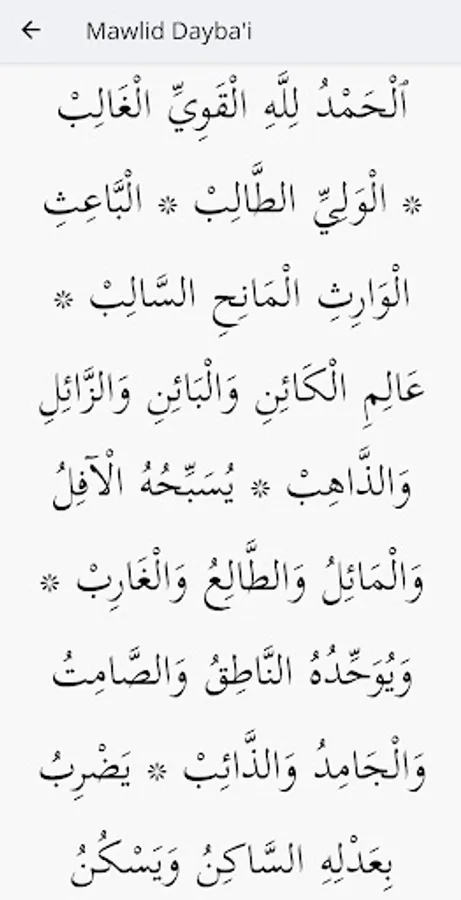 Mawlid Dayba'i
ٱلْحَمْدُ لِلَّهِ الْقَوِيِّ الْغَالِبْ
❊ الْوَلِيِّ الطَّالِبْ ❊ الْبَّاعِثِ
الْوَارِثِ الْمَانِحِ السَّالِبْ ❊
عَالِمِ الْكَائِنِ وَالْبَائِنِ وَالزَّائِلِ
وَالذَّاهِبْ ❊ يُسَبِّحُهُ الْآفِلُ
وَالْمَائِلُ وَالطَّالِعُ وَالْغَارِبْ ❊
وَيُوَحِّدُهُ النَّاطِقُ وَالصَّامِتُ
وَالْجَامِدُ وَالذَّائِبْ ❊ يَضْرِبُ
بِعَدْلِهِ السَّاكِنُ وَيَسْكُنُ